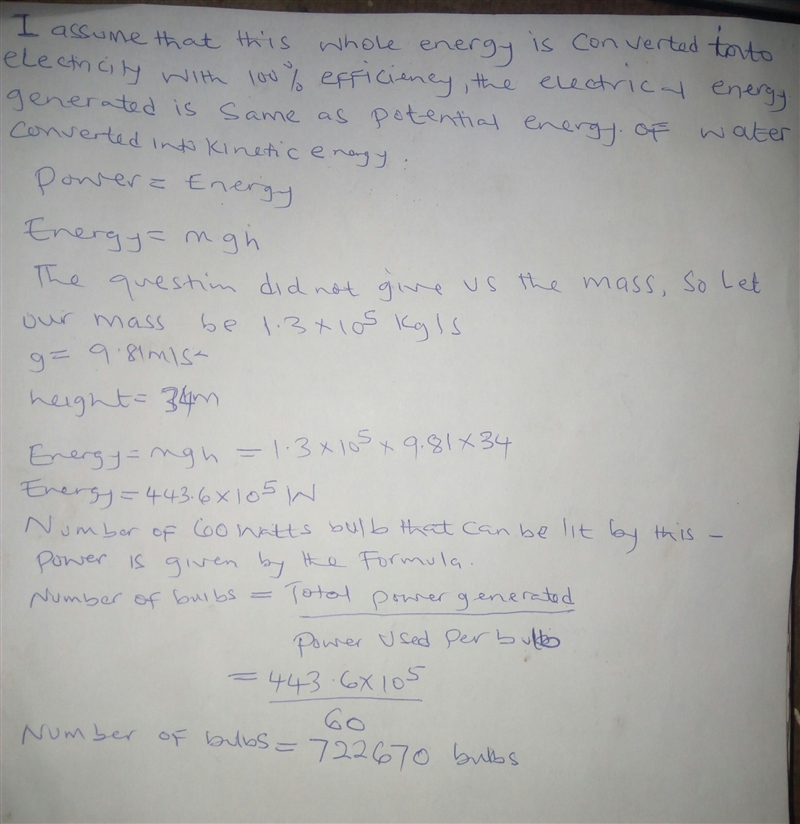 I assume that this whole energy is converted into
electricity with 100% efficiency, the electrical energy
generated is same as potential energy of water
converted into kinetic energy.
Power = Energy
Energy = mgh
The question did not give us the mass, so let
our mass be 1.3 × 10⁵ kg/s
g = 9.81m/s²
height = 34m
Energy = mgh = 1.3 × 10⁵ × 9.81 × 34
Energy = 443.6 × 10⁵ W
Number of 60 watts bulb that can be lit by this -
power is given by the formula.
Number of bulbs = Total power generated
Power used per bulb
= 443.6 × 10⁵
60
Number of bulbs = 722670 bulbs